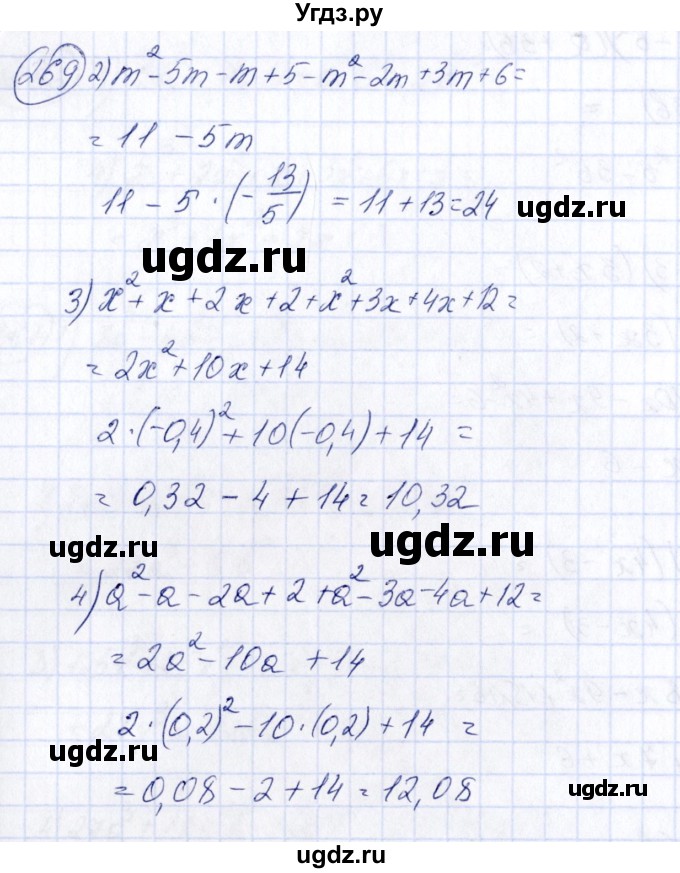 Угдз.ру
269 2) m² - 5m - m + 5 - m² - 2m + 3m + 6 =
= 11 - 5m
11 - 5 · (- 13/5) = 11 + 13 = 24
ugdz.ru
ugdz.ru
3) x² + x + 2x + 2 + x² + 3x + 4x + 12 =
= 2x² + 10x + 14
2 · (-0,4)² + 10(-0,4) + 14 =
= 0,32 - 4 + 14 = 10,32
ugdz.ru
ugdz.ru
4) a² - a - 2a + 2 + a² - 3a - 4a + 12 =
= 2a² - 10a + 14
2 · (0,2)² - 10 · (0,2) + 14 =
ugdz.ru
= 0,08 - 2 + 14 = 12,08
ugdz.ru
ugdz.ru